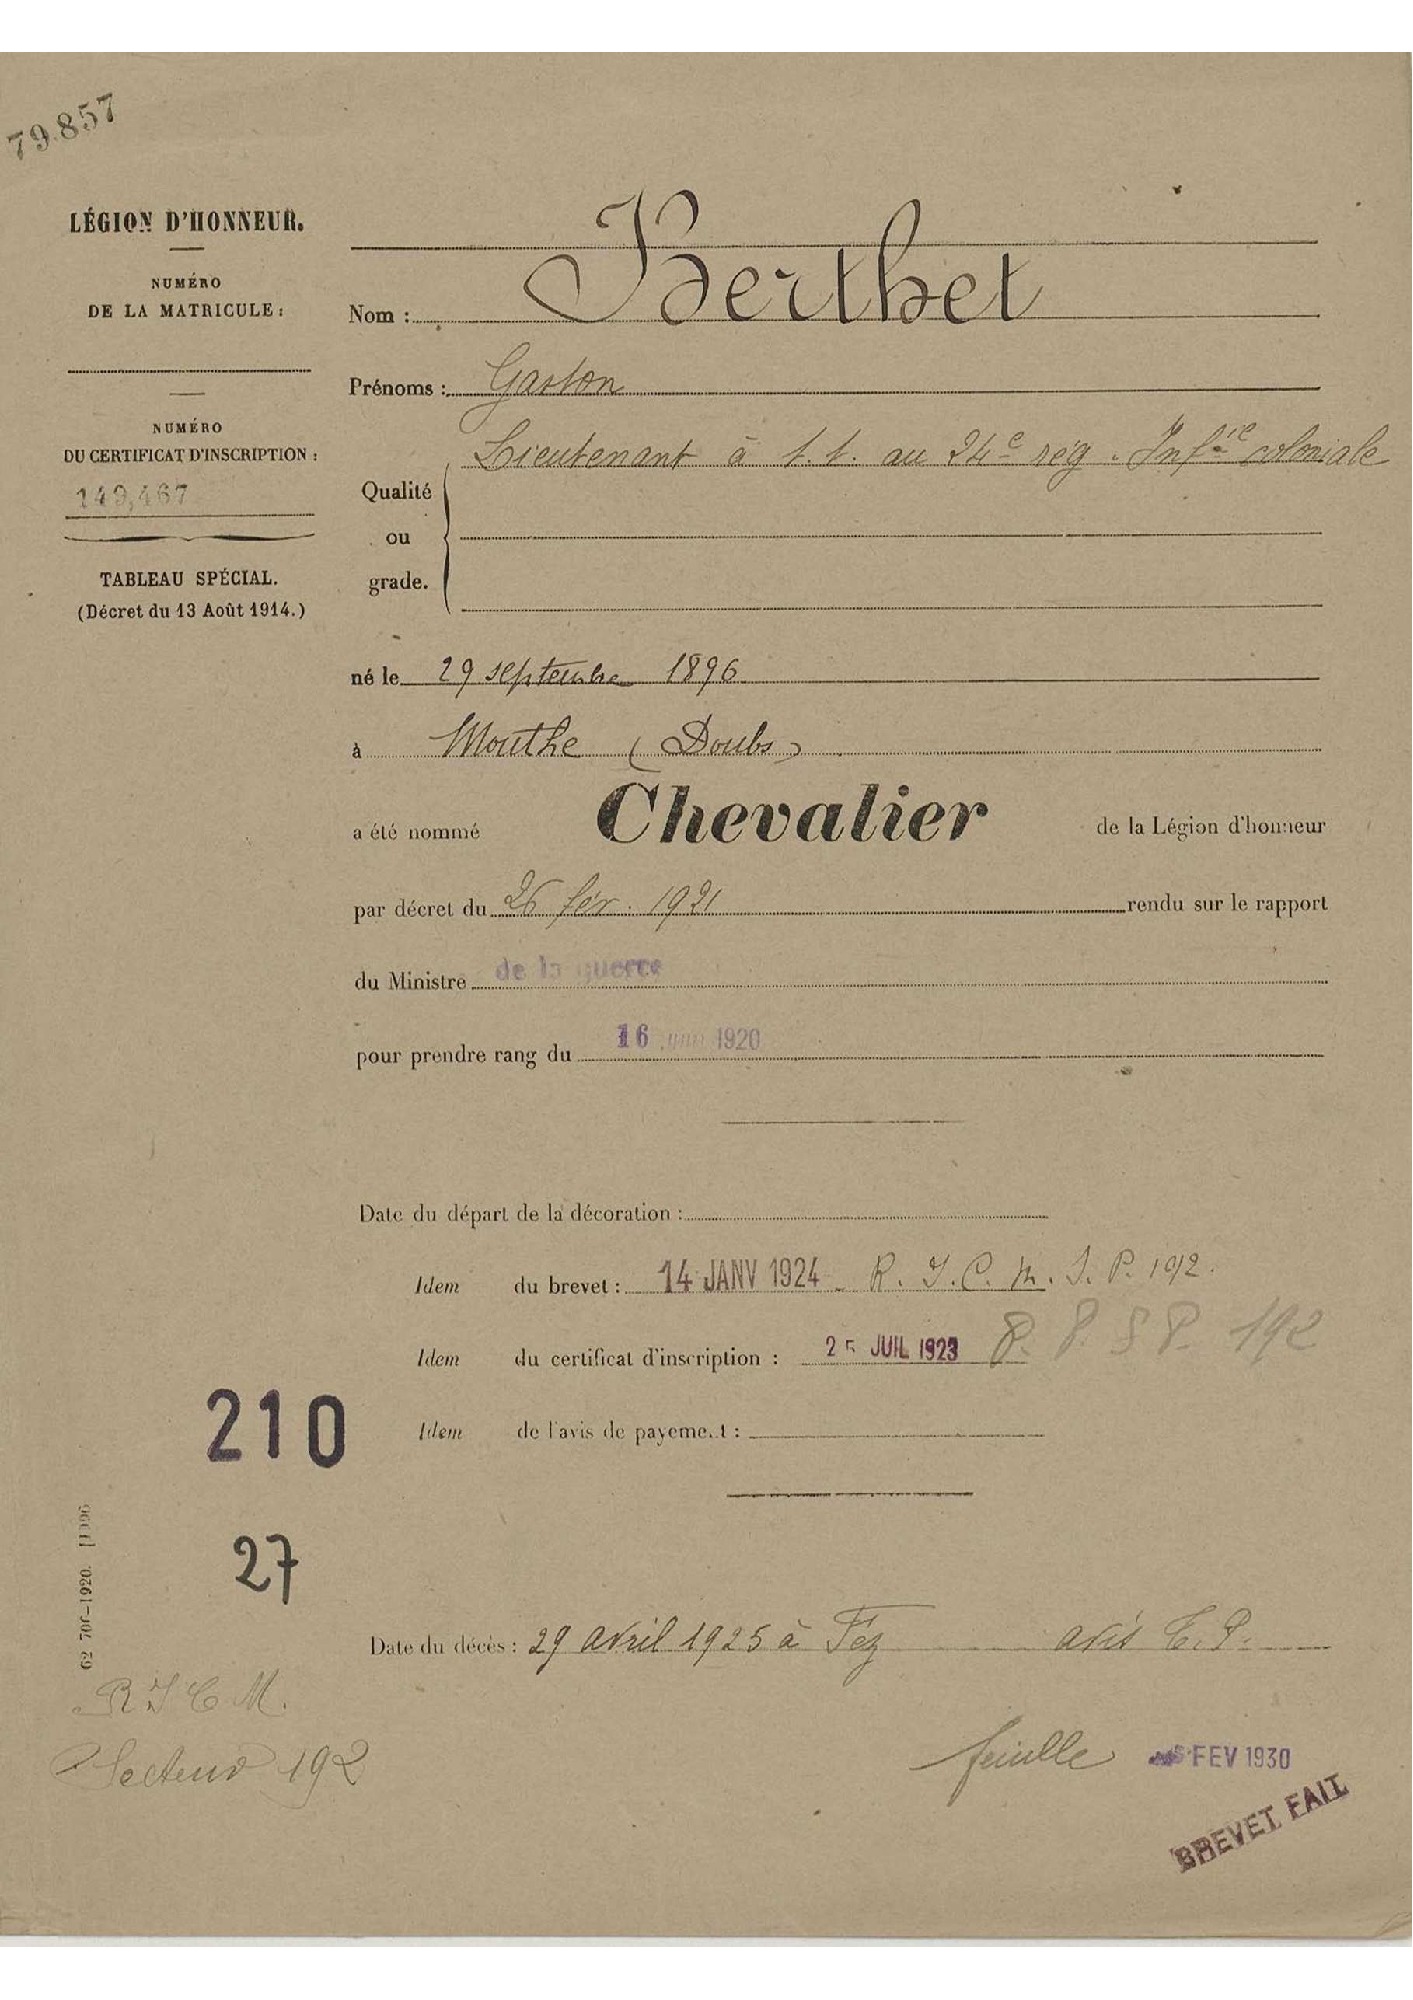 79.857
LÉGION D'HONNEUR.
NUMÉRO
DE LA MATRICULE :
NUMÉRO
DU CERTIFICAT D'INSCRIPTION :
149,467
TABLEAU SPÉCIAL.
(Décret du 13 Août 1914.)
Nom : Berthet
Prénoms : Gaston
Lieutenant à t.t. au 24e rég. Infie coloniale
Qualité
ou
grade.
né le 29 septembre 1896
à Mouthe (Doubs)
a été nommé Chevalier de la Légion d'honneur
par décret du 26 fév. 1921 rendu sur le rapport
du Ministre de la guerre
pour prendre rang du 16 1920
Date du départ de la décoration :
Idem du brevet : 14 JANV 1924 R. I. C. M. S. P. 192.
Idem du certificat d'inscription : 25 JUIL 1923 S P. 192
210
Idem de l'avis de payement :
27
62 700-1920.
Date du décès : 29 avril 1925 à Fez avis C. P.
R I C M.
Secteur 192
feuille FEV 1930
BREVET FAIT